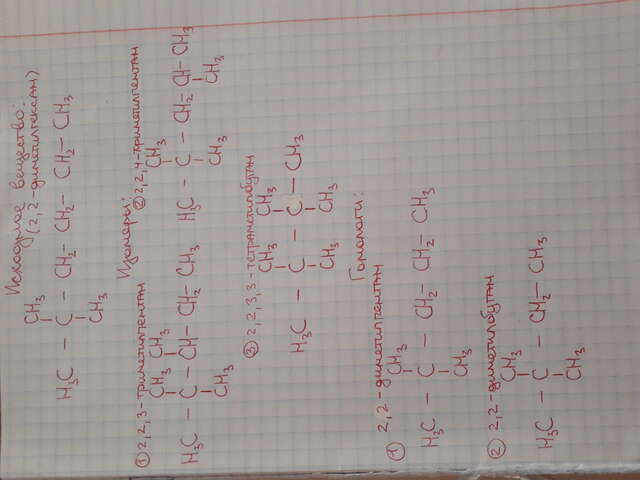 Исходное вещество:
(2,2-диметилгексан)
CH3
H3C - C - CH2 - CH2 - CH2 - CH3
CH3
Изомеры:
① 2,2,3-триметилпентан
CH3 CH3
H3C - C - CH - CH2 - CH3
CH3
② 2,2,4-триметилпентан
CH3
H3C - C - CH2 - CH - CH3
CH3 CH3
③ 2,2,3,3-тетраметилбутан
CH3 CH3
H3C - C - C - CH3
CH3 CH3
Гомологи:
① 2,2-диметилпентан
CH3
H3C - C - CH2 - CH2 - CH3
CH3
② 2,2-диметилбутан
CH3
H3C - C - CH2 - CH3
CH3